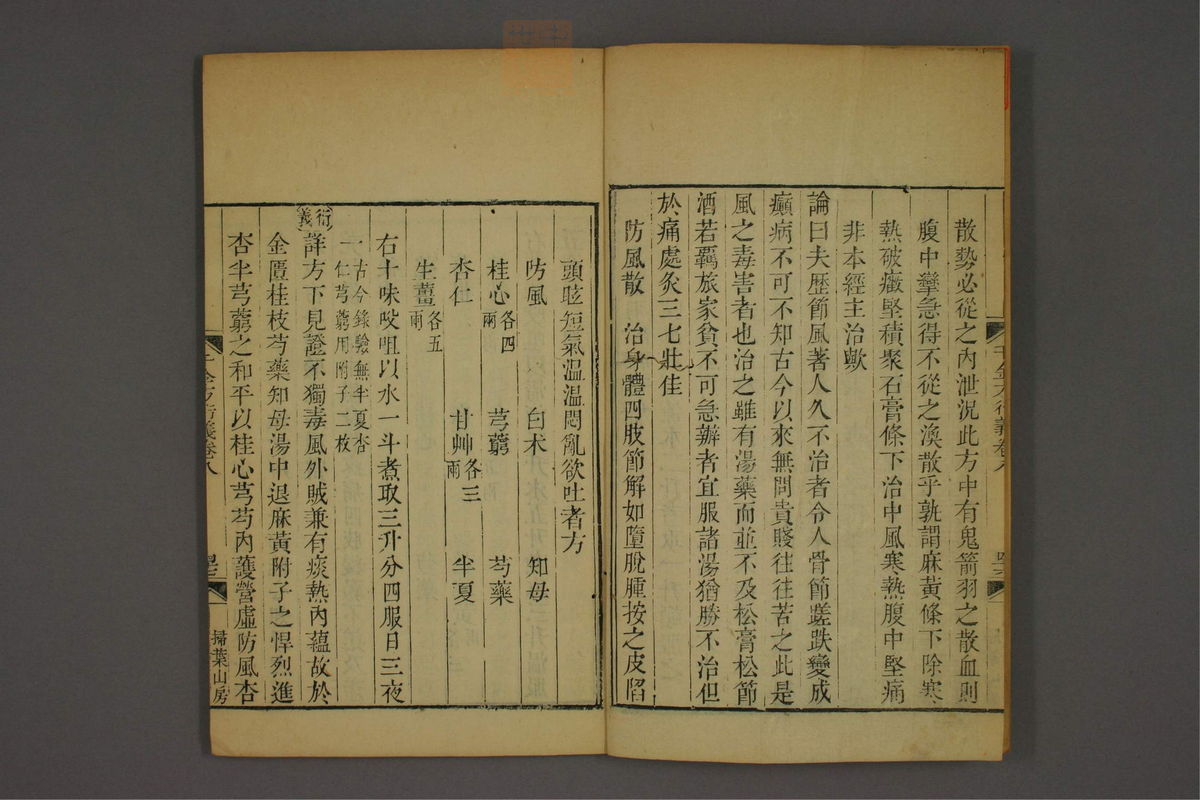 散勢必從之內泄況此方中有鬼箭羽之散血則
腹中攣急得不從之渙散乎孰謂麻黃條下除寒
熱破癥堅積聚石膏條下治中風寒熱腹中堅痛
非本經主治歟
論曰夫歷節風著人久不治者令人骨節蹉跌變成
癲病不可不知古今以來無問貴賤往往苦之此是
風之毒害者也治之雖有湯藥而並不及松膏松節
酒若羇旅家貧不可急辦者宜服諸湯猶勝不治但
於痛處灸三七壯佳
防風散　治身體四肢節解如墮脫腫按之皮陷
頭眩短氣溫溫悶亂欲吐者方
防風　白术　知母
桂心各四兩　芎藭　芍藥
杏仁　甘艸各三兩　半夏
生薑各五兩
右十味㕮咀以水一斗煮取三升分四服日三夜
一古今錄驗無半夏杏仁芎藭用附子二枚
衍義
詳方下見證不獨毒風外賊兼有痰熱內蘊故於
金匱桂枝芍藥知母湯中退麻黃附子之悍烈進
杏半芎藭之和平以桂心芎芍內護營虛防風杏
千金方衍義卷八
掃葉山房